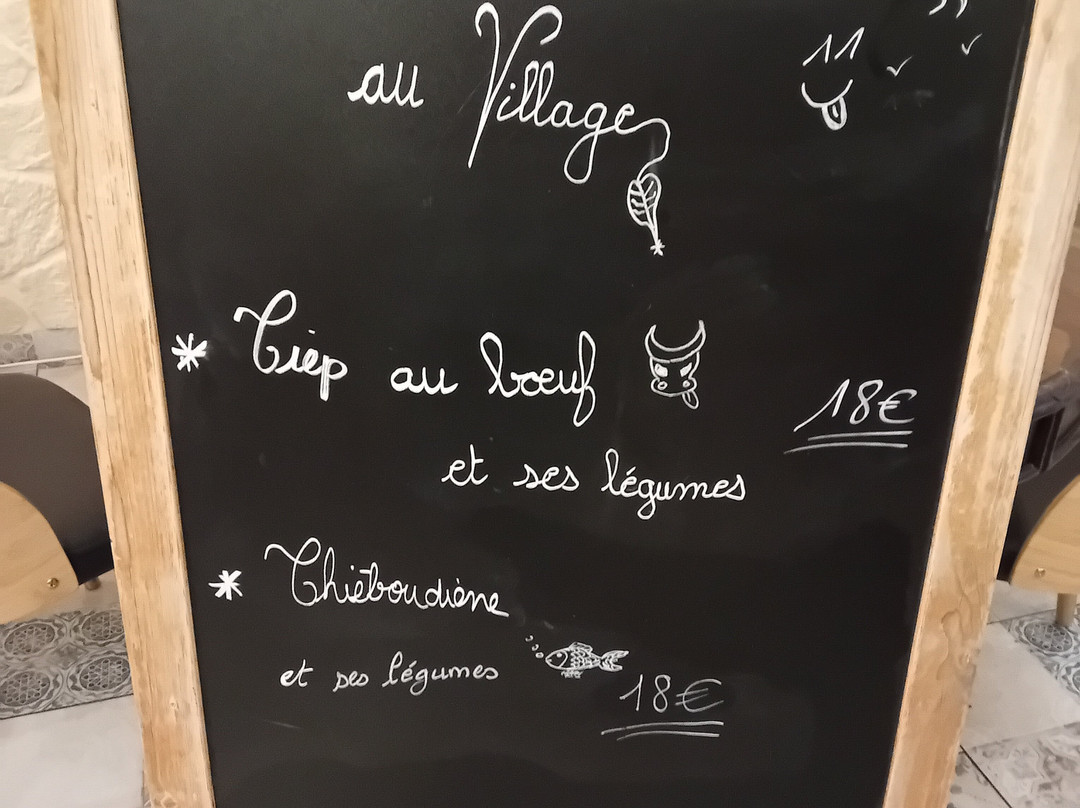 au Village
* Tiep au bœuf
18€
et ses légumes
* Thiéboudiène
et ses légumes
18€